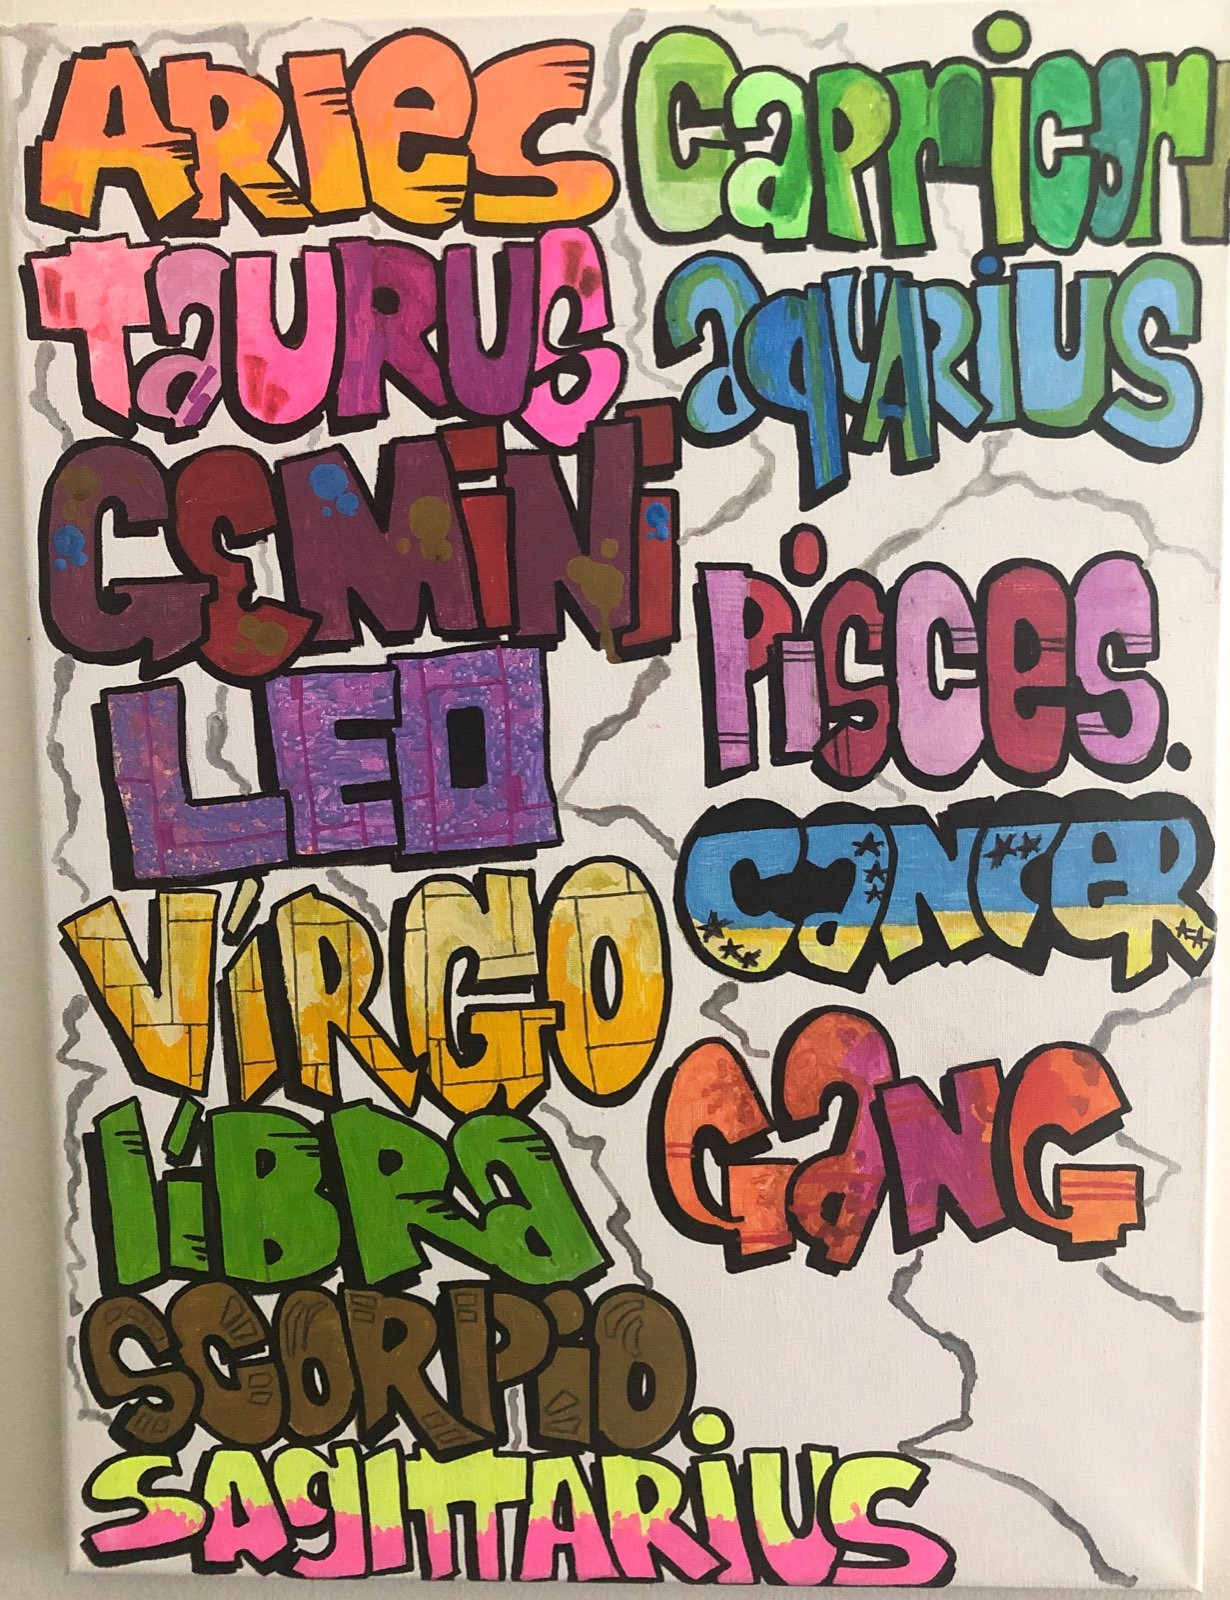 ARIES
TaURUS
GEMiNi
LEO
ViRGO
LiBRa
SCORPiO
SAgITTARiUS
Capricorn
aqUARiUS
PisCes.
CaNCER
GaNG